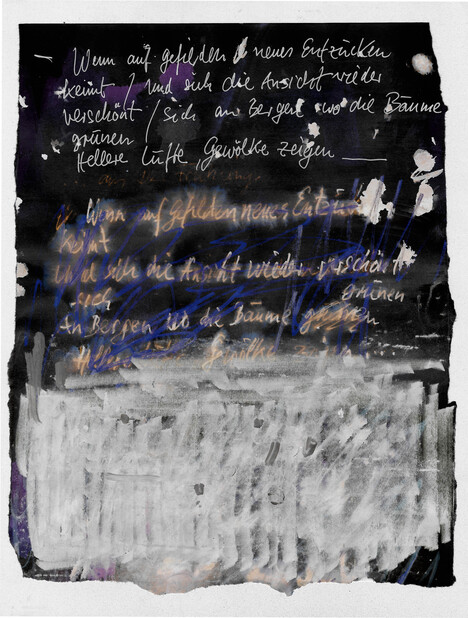 — Wenn auf gefilden neues Entzücken
keimt / und sich die Ansicht wieder
verschönt / sich an Bergen wo die Bäume
grünen
Hellere Lüfte, Gewölke zeigen —
Wenn auf gefilden neues
keimt
und sich die Ansicht wieder verschönt
grünen
An Bergen wo die Bäume grünen
Gewölke